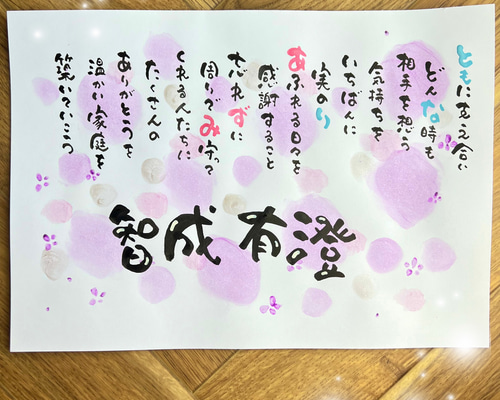 ともに支え合い
どんな時も
相手を想う
気持ちを
いちばんに
実のり
あふれる日々を
感謝すること
忘れずに
周りでみ守って
くれる人たちに
たくさんの
ありがとうを
温かい家庭を
築いていこう
智成 有澄